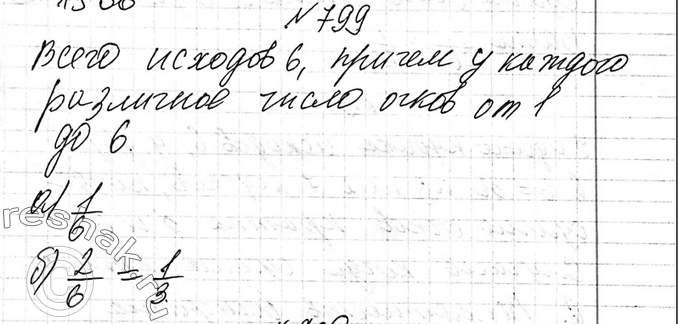 N799
Всего исходов 6, причем у каждого
различное число очков от 1
до 6.
а) 1/6
б) 2/6 = 1/3
reshak.ru